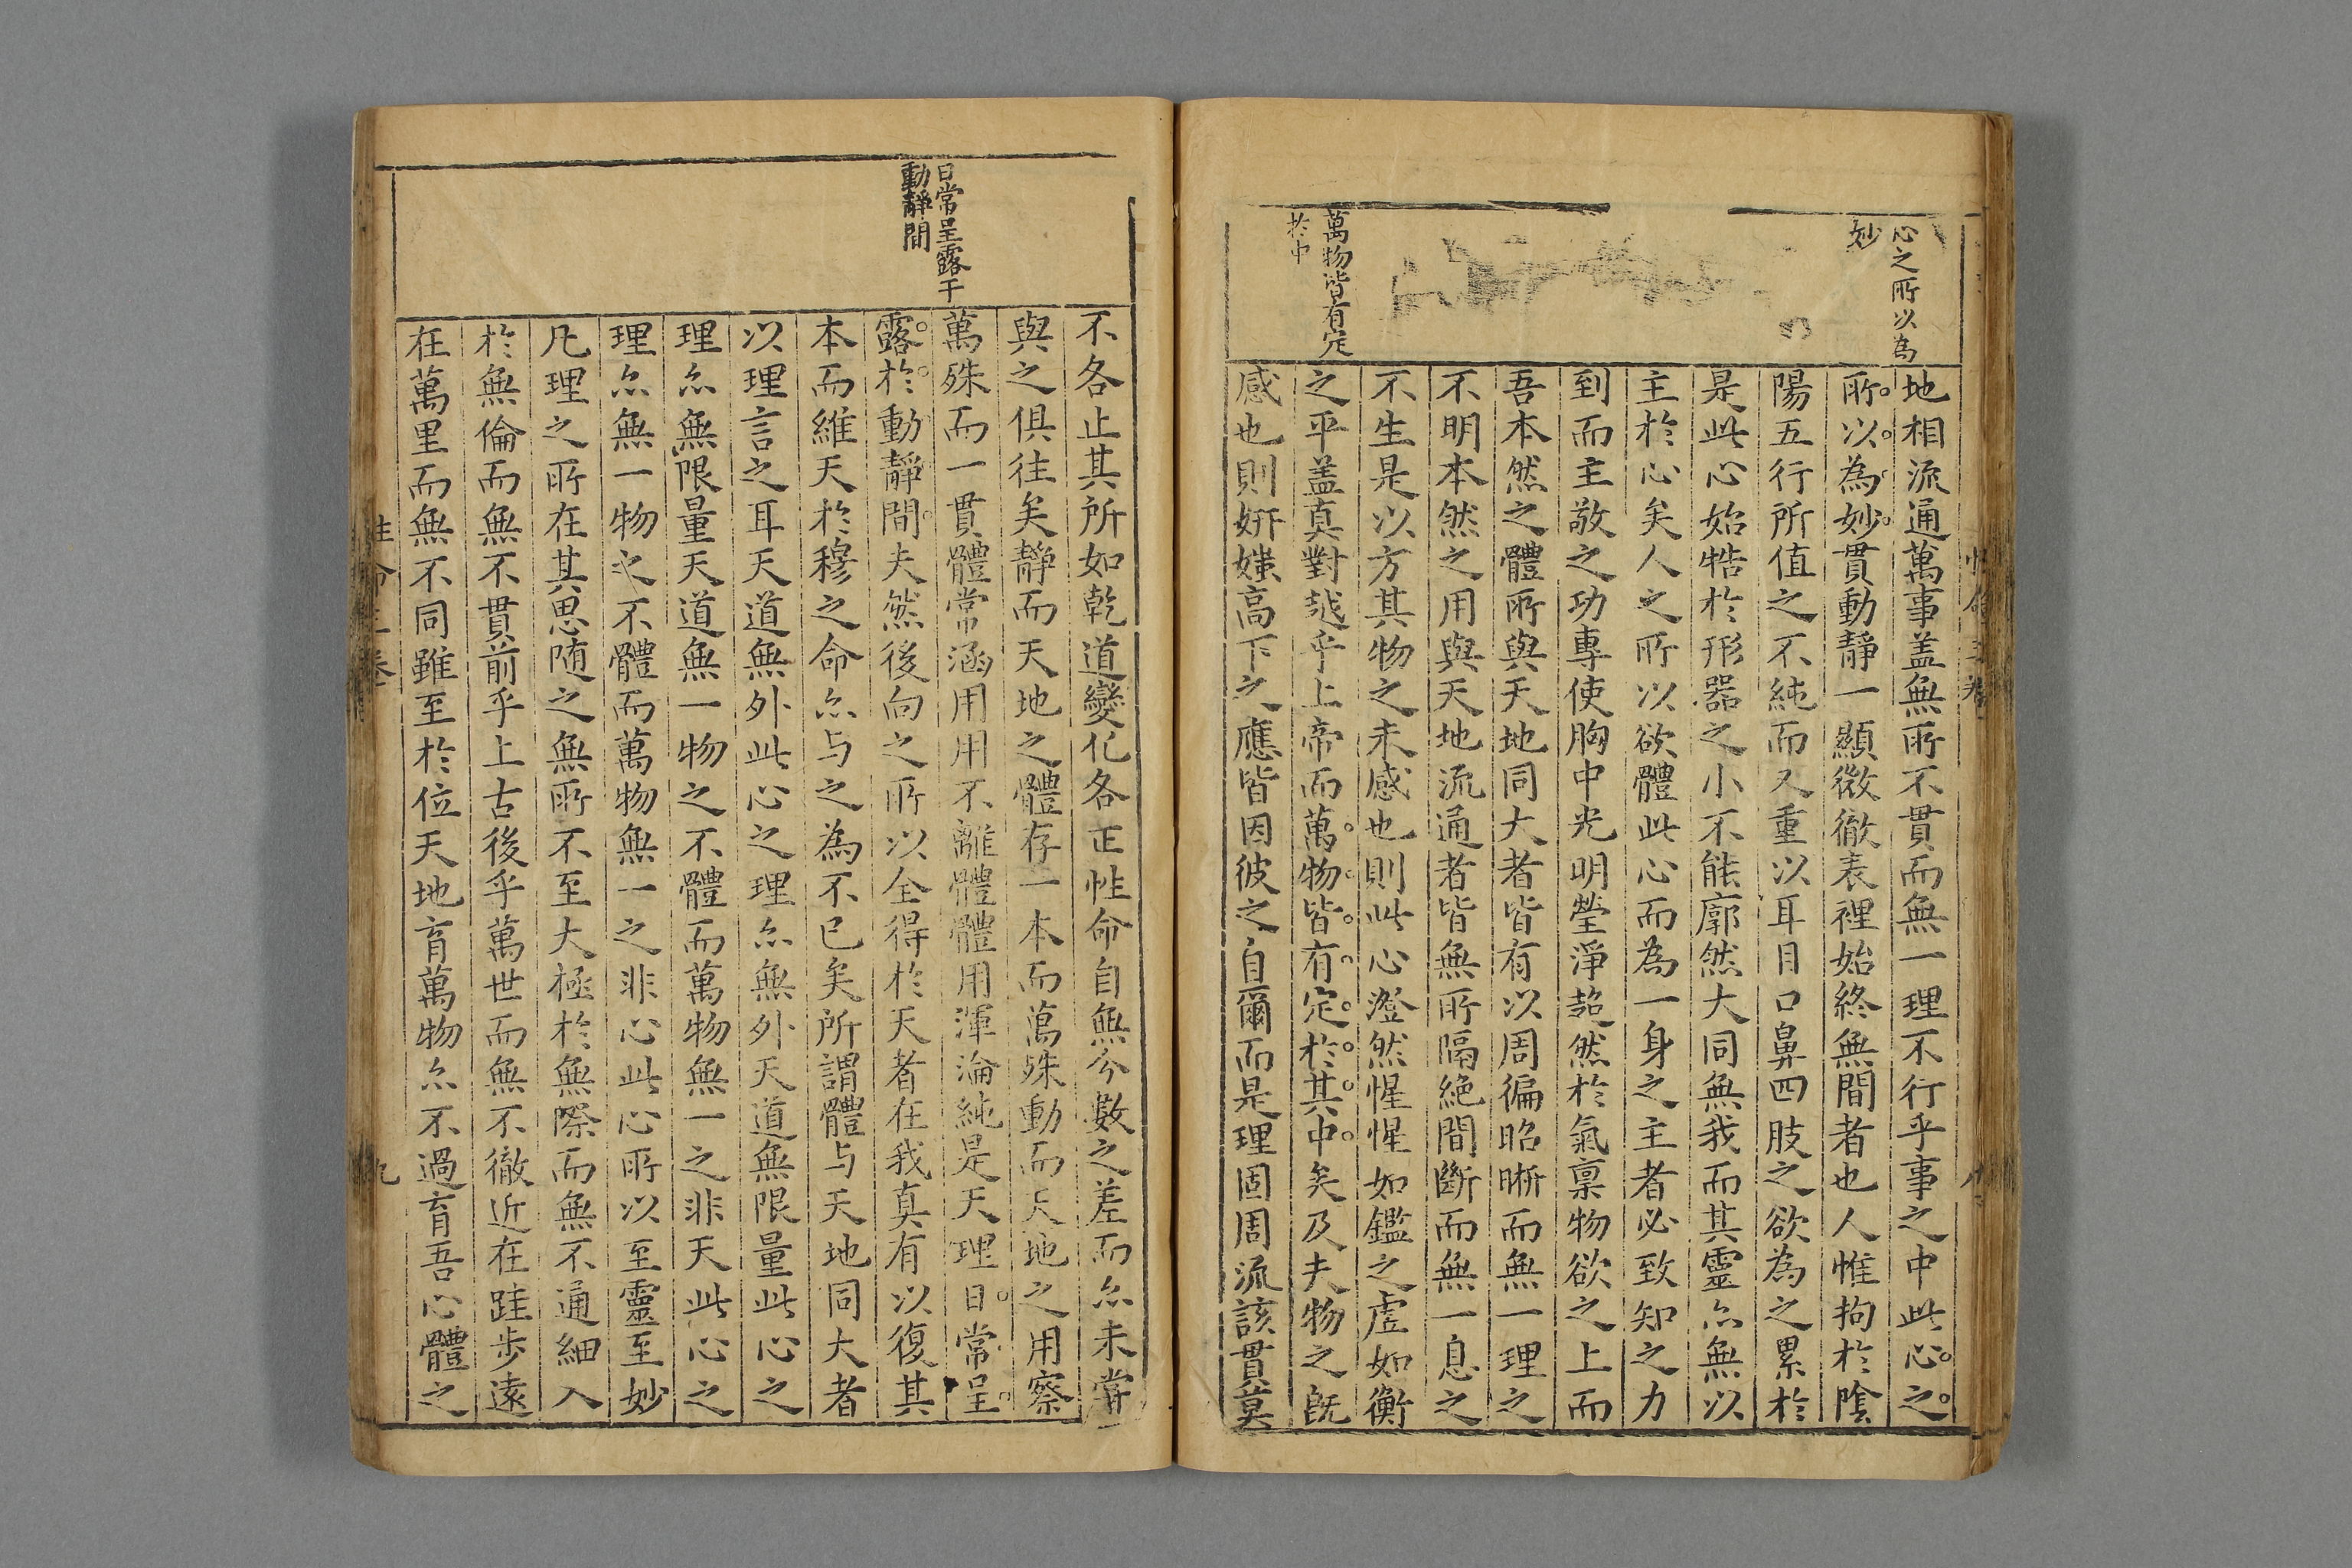 心之所以為
妙
萬物皆有定
於中
地相流通萬事盖無所不貫而無一理不行乎事之中此心之
所以為妙貫動靜一顯微徹表裡始終無間者也人惟拘於陰
陽五行所值之不純而又重以耳目口鼻四肢之欲為之累於
是此心始牿於形器之小不能廓然大同無我而其靈亦無以
主於心矣人之所以欲體此心而為一身之主者必致知之力
到而主敬之功專使胸中光明瑩淨超然於氣稟物欲之上而
吾本然之體所與天地同大者皆有以周徧昭晣而無一理之
不明本然之用與天地流通者皆無所隔絶間斷而無一息之
不生是以方其物之未感也則此心澄然惺惺如鑑之虛如衡
之平盖真對越乎上帝而萬物皆有定於其中矣及夫物之既
感也則妍媸高下之應皆因彼之自爾而是理固周流該貫莫
日常呈露于
動靜間
不各止其所如乾道變化各正性命自無分數之差而亦未嘗
與之俱往矣靜而天地之體存一本而萬殊動而天地之用察
萬殊而一貫體常涵用用不離體體用渾淪純是天理日常呈
露於動靜間夫然後向之所以全得於天者在我真有以復其
本而維天於穆之命亦与之為不已矣所謂體与天地同大者
以理言之耳天道無外此心之理亦無外天道無限量此心之
理亦無限量天道無一物之不體而萬物無一之非天此心之
理亦無一物之不體而萬物無一之非心此心所以至靈至妙
凡理之所在其思随之無所不至大極於無際而無不通細入
於無倫而無不貫前乎上古後乎萬世而無不徹近在跬步遠
在萬里而無不同雖至於位天地育萬物亦不過育吾心體之
性命三卷
九